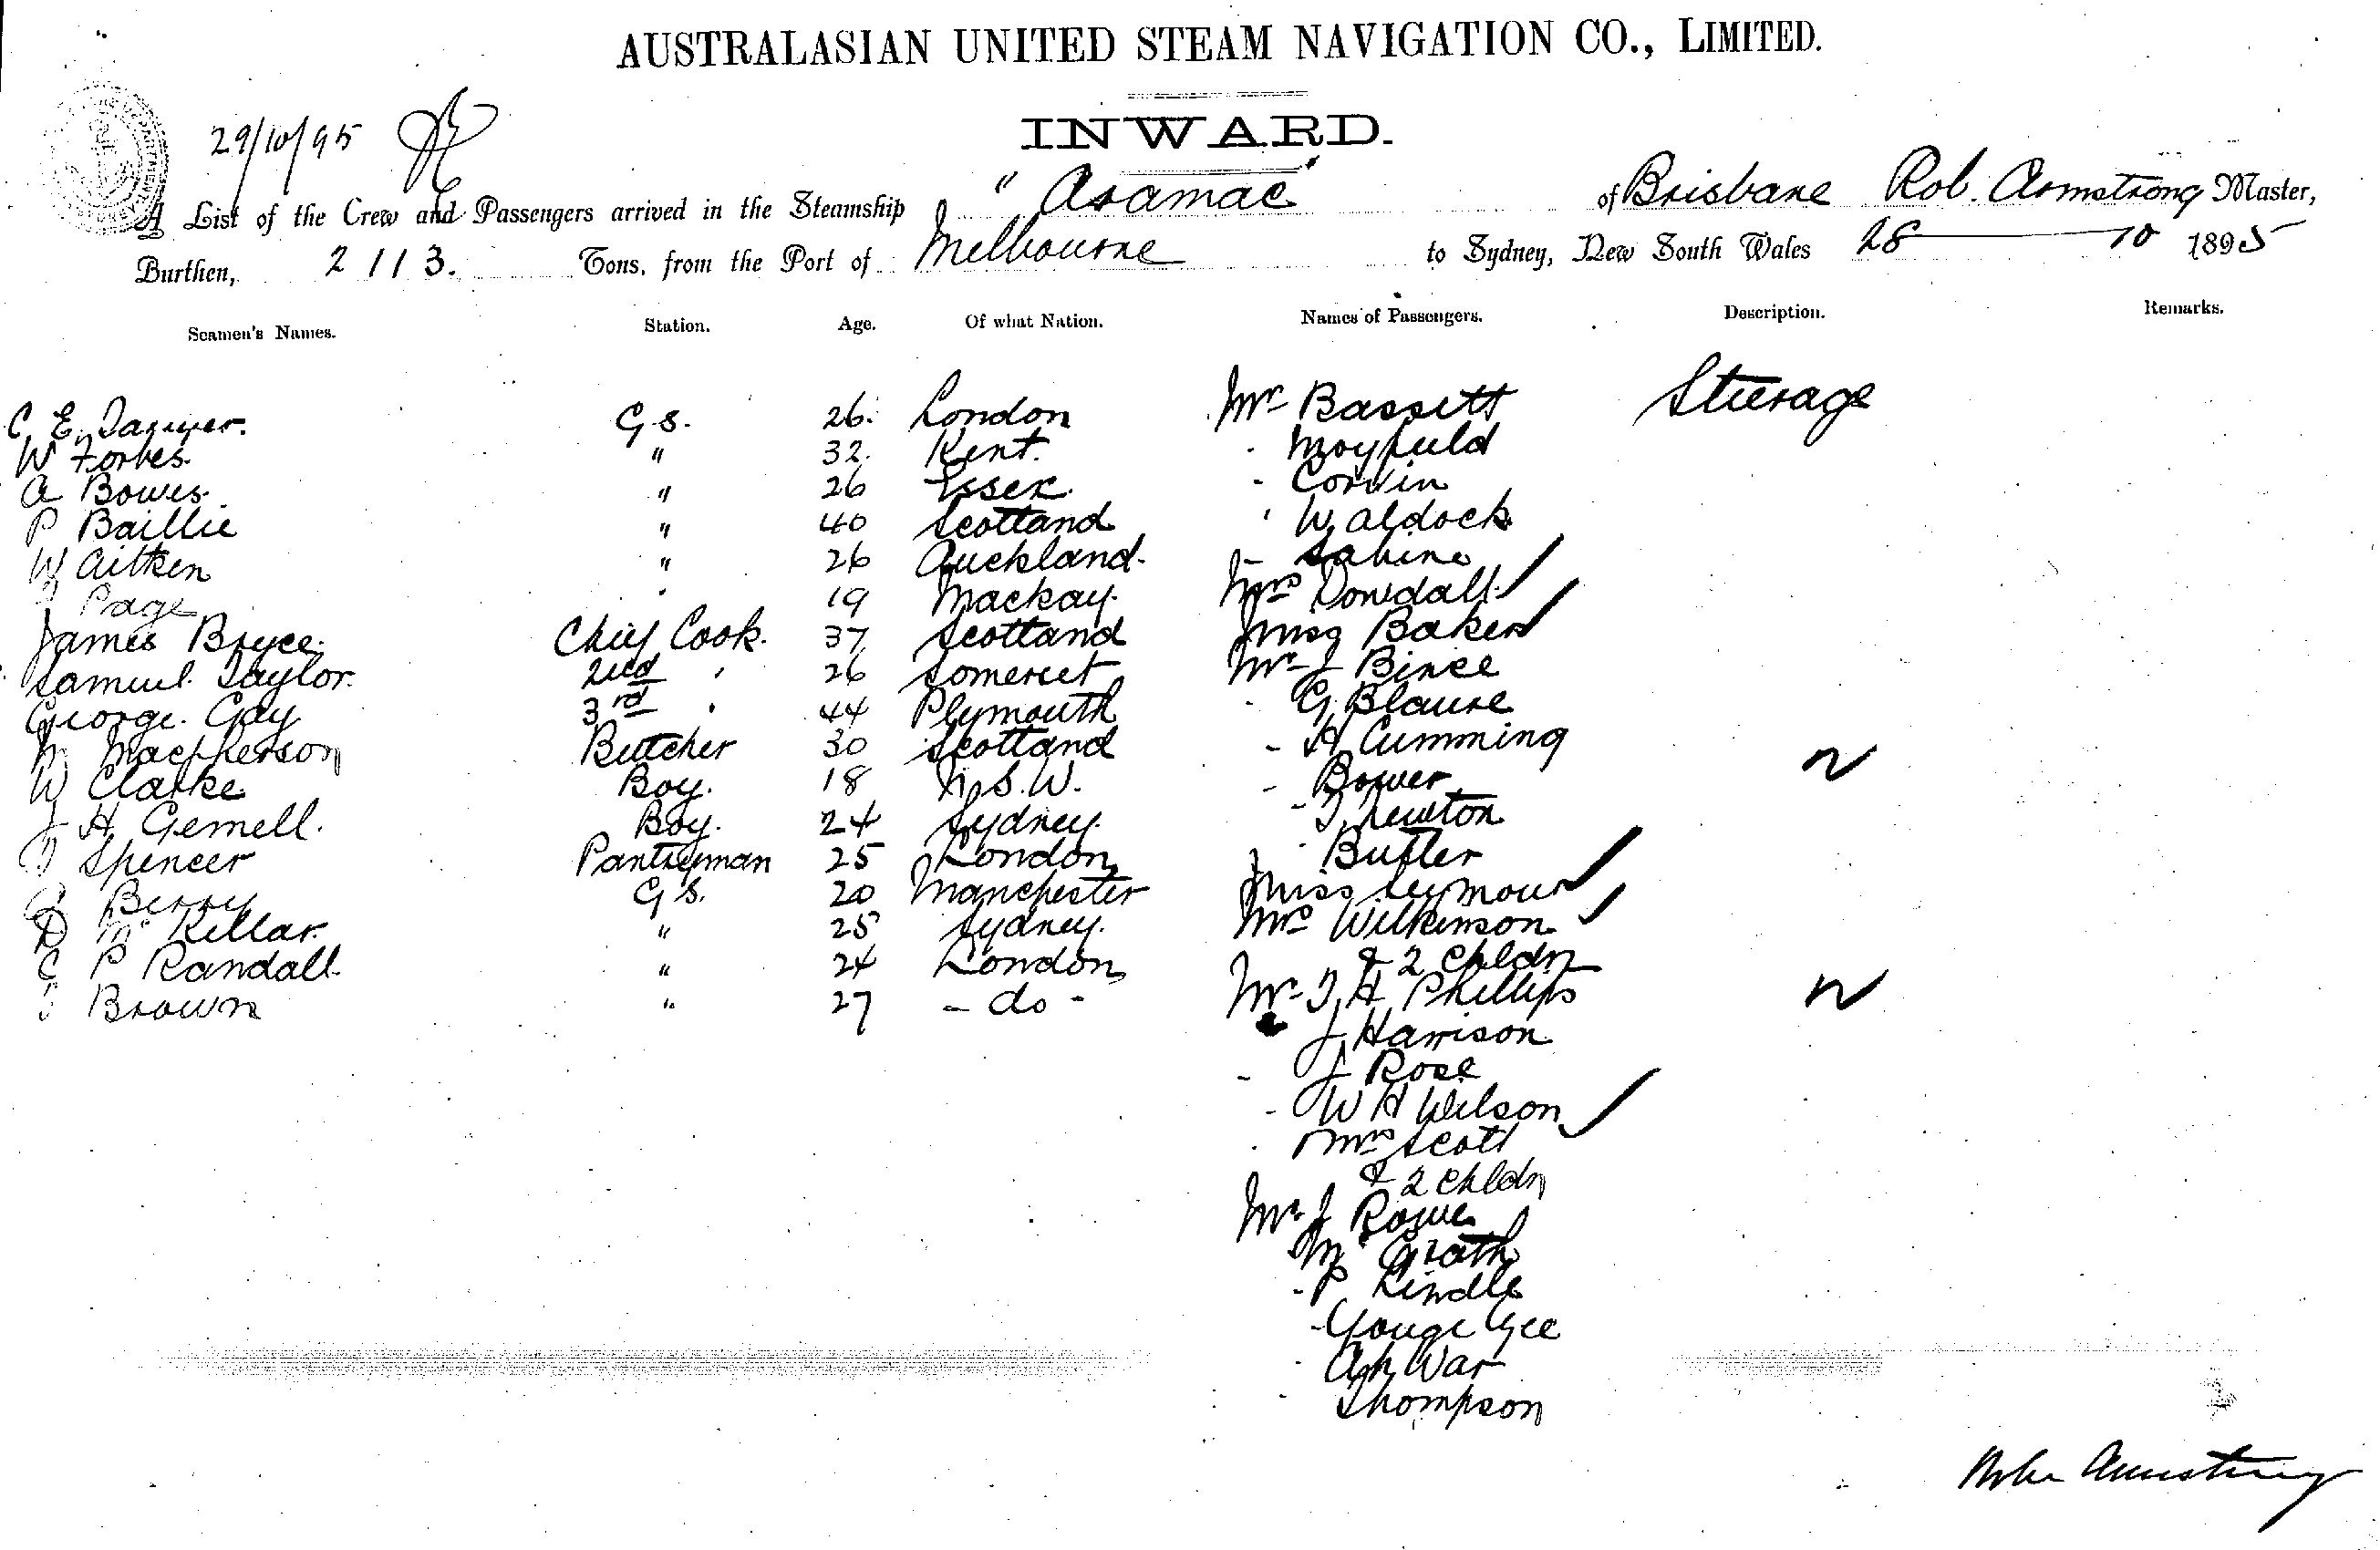 AUSTRALASIAN UNITED STEAM NAVIGATION CO., LIMITED.
INWARD.
29/10/95
A List of the Crew and Passengers arrived in the Steamship "Aramac" of Brisbane Rob. Armstrong Master,
Burthen, 2113. Tons, from the Port of Melbourne to Sydney, New South Wales 28 — 10 1895
Seamen's Names. Station. Age. Of what Nation. Names of Passengers. Description. Remarks.
C E. G.S. 26. London Mr Bassett Steerage
W Forbes " 32. Kent. - Moyfield
A Bowes " 26 Essex. -
P Baillie " 40 Scotland ' W Aldock
W Aitken " 26 Auckland. - Sabine
Page " 19 Mackay. Mrs Dowdall
James Bryce. Chief Cook. 37 Scotland Miss Baker
Samuel Taylor. 2nd " 26 Somerset Mr J Bince
George Gay 3rd " 44 Plymouth - G
M Macpherson Butcher 30 Scotland - A Cumming
W Clarke Boy. 18 N.S.W. - Bower
J H Gemell. Boy. 24 Sydney. - Newton
Spencer Pantryman 25 London - Butler
Berry G S. 20 Manchester Miss Seymour
D McKillar. " 25 Sydney. Mrs Wilkinson
& 2 Chldn
C P Randall " 24 London Mr J H Phillips
Brown " 27 - do - J Harrison
- J Rose
- W H Wilson
Mrs Scott
& 2 Chldn
Mr J
McGrath
- P Kindle
- Gee
Ah War
Thompson
Armstrong